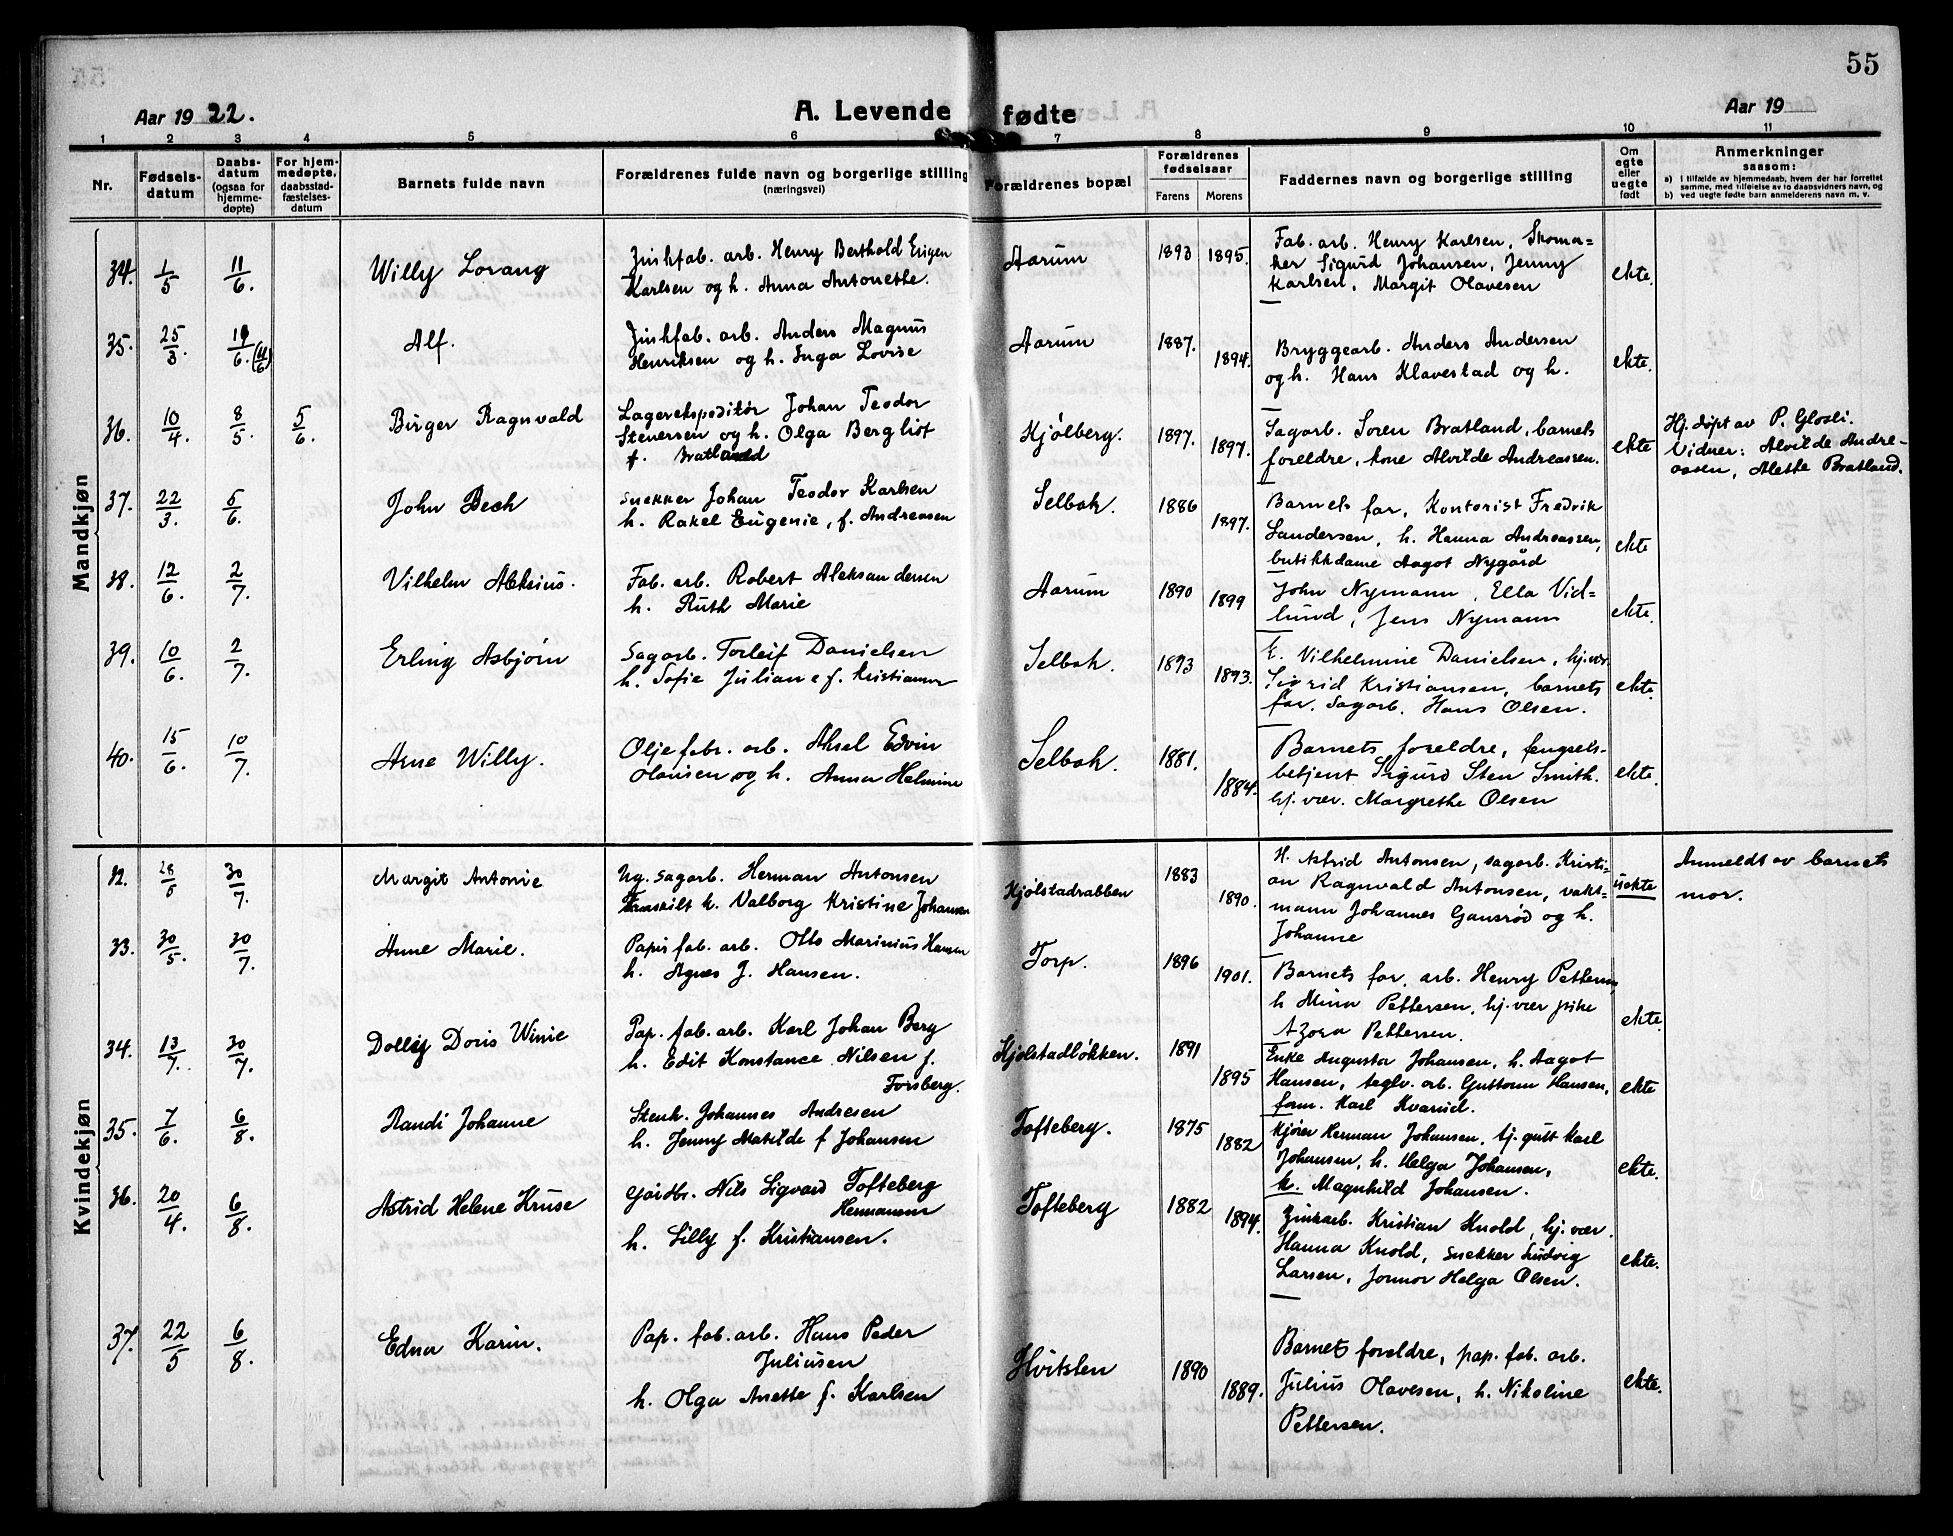 55
Aar 1922.
A. Levende fødte
Aar 19
1 2 3 4 5 6 7 8 9 10 11
Nr.
Fødsels-
datum
Daabs-
datum
(ogsaa for
hjemme-
døpte)
For hjem-
medøpte,
daabsstad-
fæstelses-
datum
Barnets fulde navn
Forældrenes fulde navn og borgerlige stilling
(næringsvei)
Forældrenes bopæl
Forældrenes
fødselsaar
Farens Morens
Faddernes navn og borgerlige stilling
Om
egte
eller
uegte
født
Anmerkninger
saasom:
a) i tilfælde av hjemmedaab, hvem der har forrettet
samme, med tilføielse av to daabsvidners navn, og
b) ved uegte fødte barn anmelderens navn m. v.
Mandkjøn
34. 1/5 11/6. Willy Lorang
Zinkfab. arb. Henry Berthold Eugen
Karlsen og h. Anna Antonette.
Aarum 1893 1895.
Fab. arb. Henry Karlsen, Skoma=
ker Sigurd Johansen, Jenny
Karlsen, Margit Olavesen
ekte.
35. 25/3. 19/6. (11/6) Alf.
Zinkfab. arb. Anders Magnus
Henriksen og h. Inga Lovise
Aarum 1887. 1894.
Bryggearb. Anders Andersen
og h. Hans Klavestad og h.
ekte.
36. 10/4. 8/5. 5/6. Birger Ragnvald
Lagerekspeditör Johan Teodor
Stenersen og h. Olga Bergliot
f. Bratland
Kjølberg. 1897. 1897.
Sagarb. Soren Bratland, barnets
foreldre, kone Alvilde Andreassen.
ekte
Hj. döpt av P. Glosli.
Vidner: Alvilde Andre-
assen, Alette Bratland.
37. 22/3. 5/6. John Bech
Snekker Johan Teodor Karlsen
h. Rakel Eugenie, f. Andreasen
Selbak. 1886 1897.
Barnets far, Kontorist Fredrik
Sandersen, h. Hanna Andreassen,
butikkdame Aagot Nygård
ekte
38. 12/6. 2/7. Vilhelm Aleksius.
Fab. arb. Robert Aleksandersen
h. Ruth Marie
Aarum 1890 1899
John Nymann, Ella Vid=
lund, Jens Nymann
ekte.
39. 10/6. 2/7. Erling Asbjørn
Sagarb. Torleif Danielsen
h. Sofie Juliane f. Kristiansen
Selbak. 1893 1893.
E. Vilhelmine Danielsen, hj.vær.
Sigrid Kristiansen, barnets
far. Sagarb. Hans Olsen.
ekte.
40. 15/6. 10/7. Arne Willy.
Oljefabr. arb. Aksel Edvin
Hansen og h. Anna Helmine
Selbak. 1881. 1884.
Barnets foreldre, fengsels-
betjent Sigurd Sten Smith.
hj. vær. Margrethe Olsen
ekte.
Kvindekjøn
32. 28/5 30/7. Margit Antonie
Ug. sagarb. Herman Antonsen
Fraskilt h. Valborg Kristine Johansen
Kjölstadrabben 1883 1890.
H. Astrid Antonsen, sagarb. Kristi=
an Ragnvald Antonsen, vakt-
mann Johannes Gansrød og h.
Johanne
uekte
Anmeldt av barnets
mor.
33. 30/5. 30/7. Anne Marie.
Papirfab. arb. Otto Marinius Hansen
h. Agnes J. Hansen.
Torp. 1896 1901.
Barnets far, arb. Henry Pettersen,
h Mina Pettersen, hj. vær pike
Azora Pettersen.
ekte.
34. 13/7. 30/7. Dolly Doris Winie
Pap. fab. arb. Karl Johan Berg
h. Edit Konstance Nilsen f.
Forsberg.
Kjölstadløkken. 1891 1895
Enke Augusta Johansen, h. Aagot
Hansen, teglv. arb. Guttorm Hansen,
form. Karl Kvarud.
ekte.
35. 7/6. 6/8. Randi Johanne
Stenh. Johannes Andresen
h. Jenny Matilde f Johansen
Tofteberg. 1875 1882
Kjörer Herman Johansen, tj. gutt Karl
Johansen, h. Helga Johansen,
h. Magnhild Johansen.
ekte.
36. 20/4. 6/8. Astrid Helene Kruse
Gårdbr. Nils Sigvard Tofteberg
Hermansen
h. Lilly f. Kristiansen.
Tofteberg 1882 1894.
Zinkarb. Kristian Knold, hj. vær.
Hanna Knold, snekker Ludvig
Larsen, Jomnor Helga Olsen.
ekte.
37. 22/5 6/8. Edna Karin.
Pap. fab. arb. Hans Peder
Juliusen
h. Olga Anette f. Karlsen
Hvitsten 1890 1889.
Barnets foreldre, pap. fab. arb.
Julius Olavesen, h. Nikoline
Pettersen.
ekte.